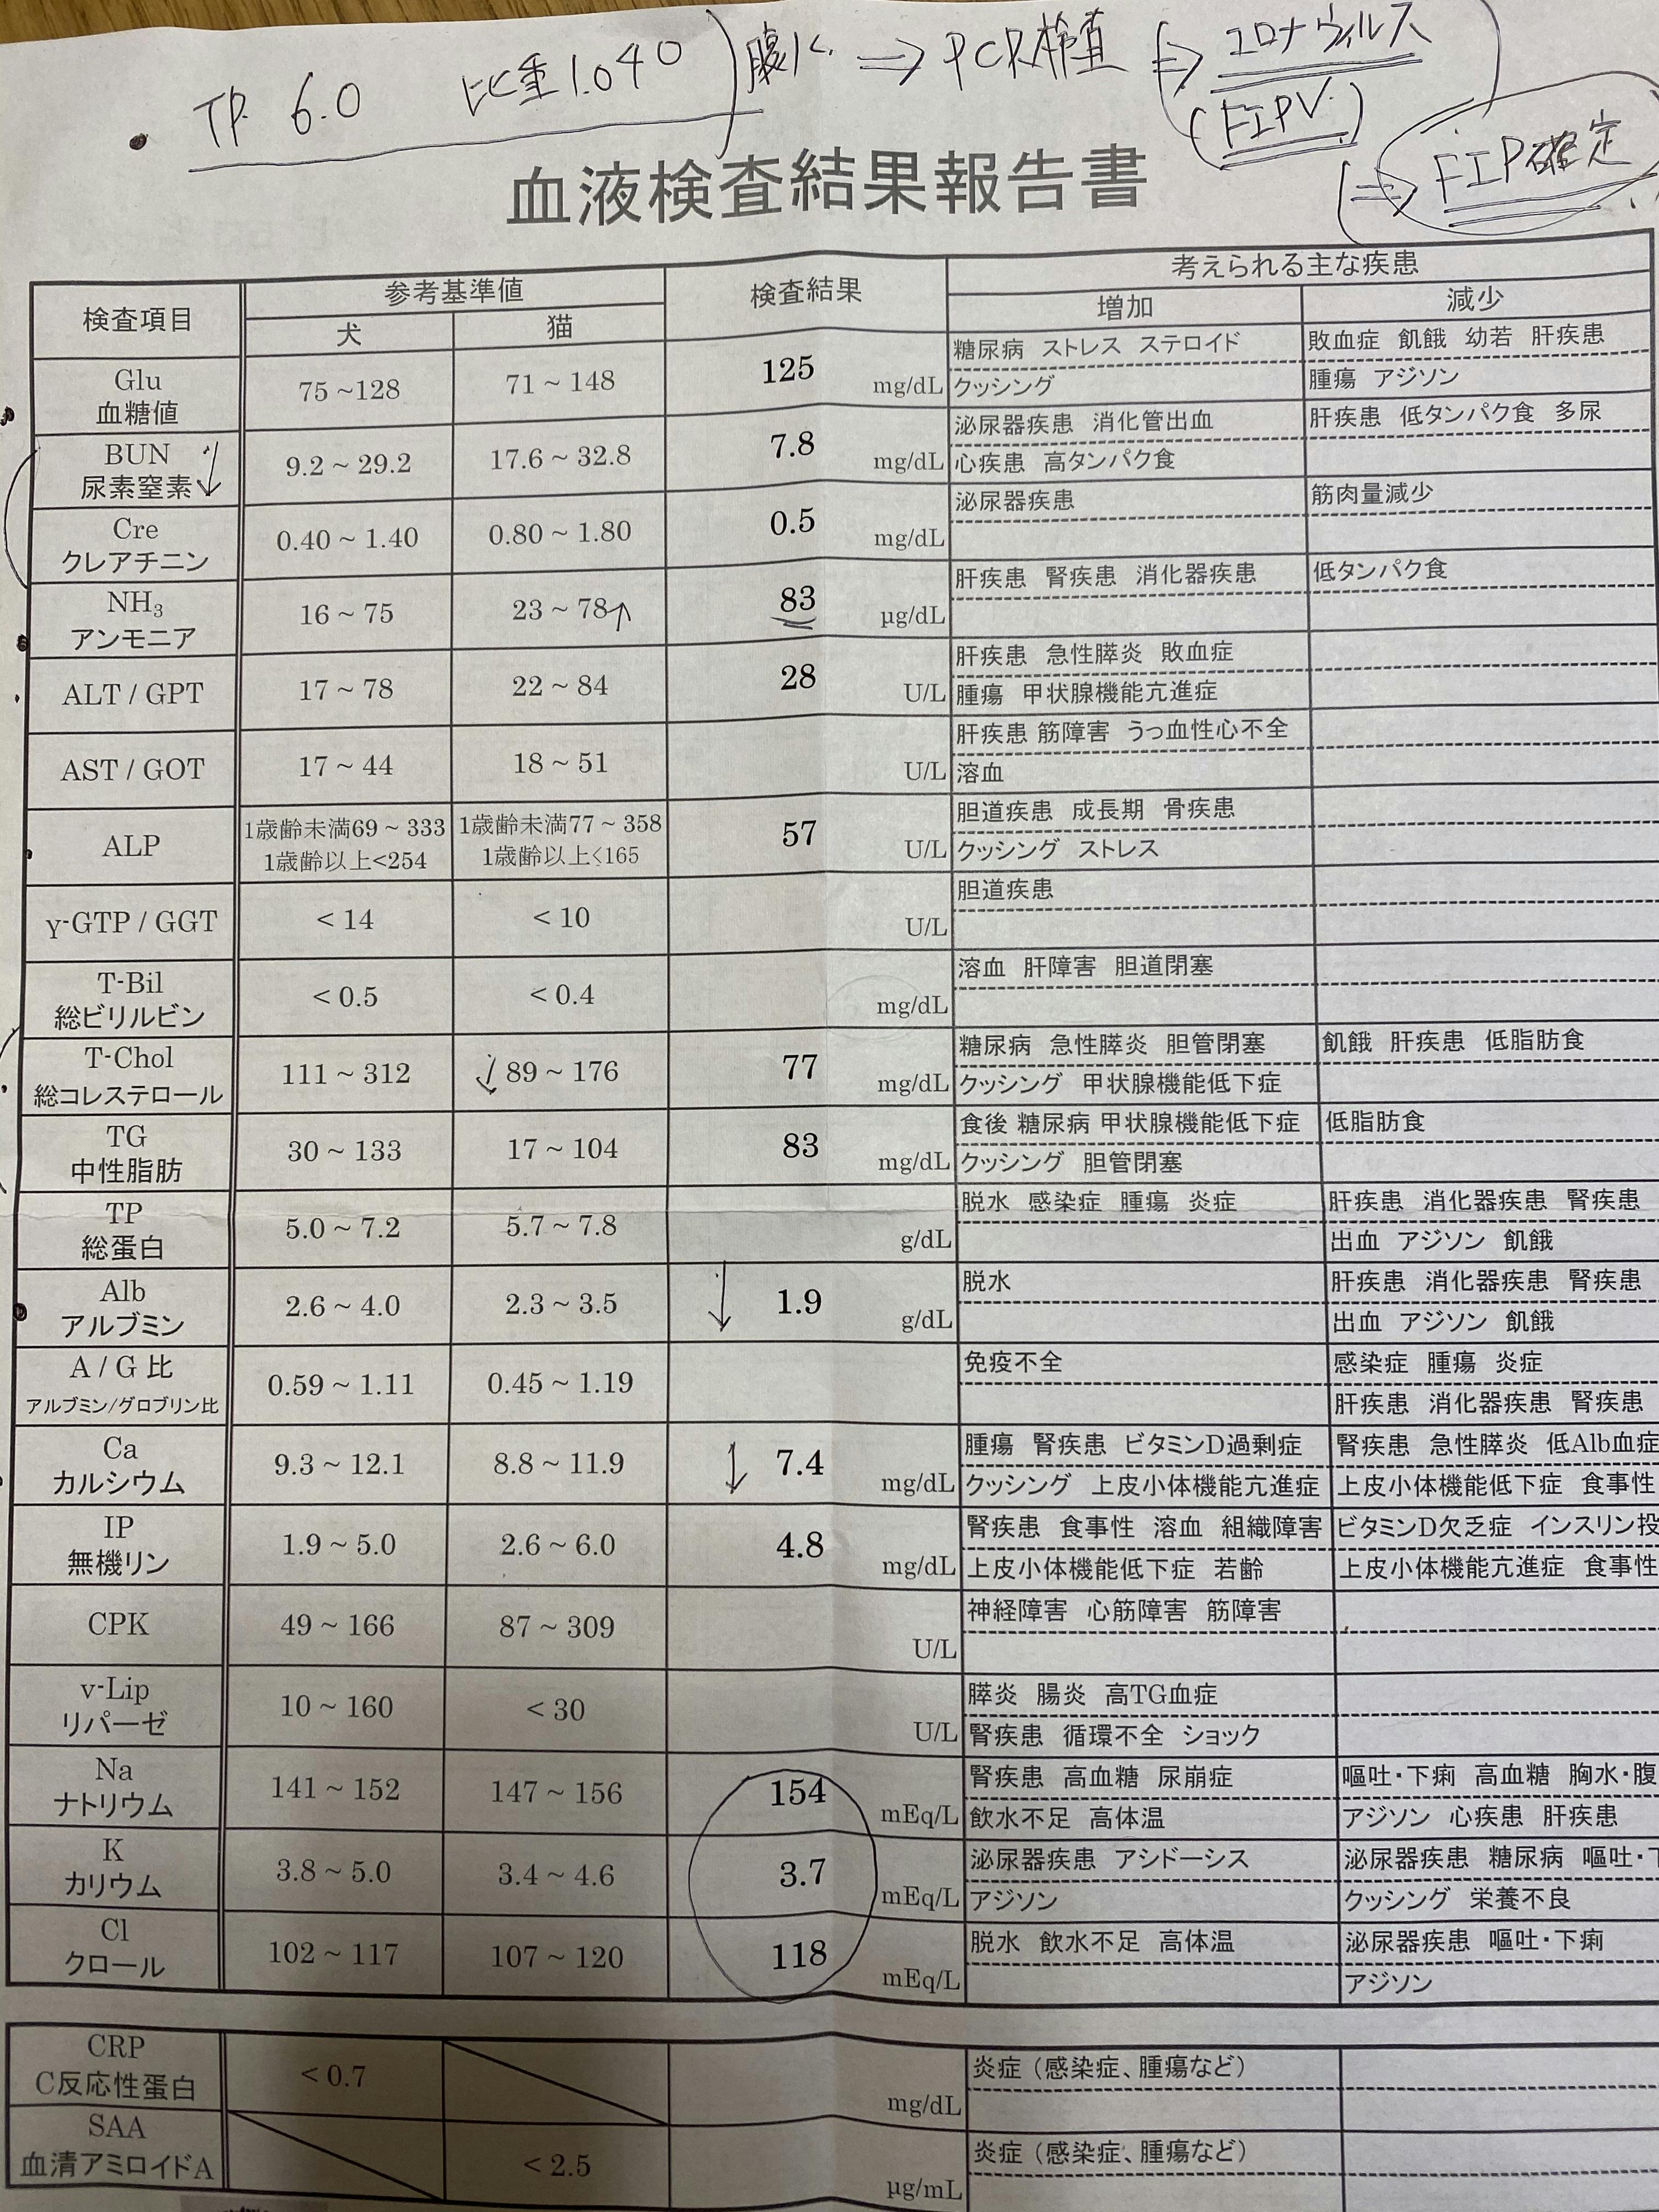 TP 6.0 比重1.040 腹水 ⇒ PCR検査 ⇒ コロナウィルス
(FIPV)
⇒ FIP確定
血液検査結果報告書
検査項目 参考基準値 検査結果 考えられる主な疾患
犬 猫 増加 減少
Glu 75 ~128 71 ~ 148 125 mg/dL 糖尿病 ストレス ステロイド 敗血症 飢餓 幼若 肝疾患
血糖値 クッシング 腫瘍 アジソン
BUN ↓ 9.2 ~ 29.2 17.6 ~ 32.8 7.8 mg/dL 泌尿器疾患 消化管出血 肝疾患 低タンパク食 多尿
尿素窒素 心疾患 高タンパク食
Cre 0.40 ~ 1.40 0.80 ~ 1.80 0.5 mg/dL 泌尿器疾患 筋肉量減少
クレアチニン
NH₃ 16 ~ 75 23 ~ 78 ↑ 83 µg/dL 肝疾患 腎疾患 消化器疾患 低タンパク食
アンモニア
ALT / GPT 17 ~ 78 22 ~ 84 28 U/L 肝疾患 急性膵炎 敗血症
腫瘍 甲状腺機能亢進症
AST / GOT 17 ~ 44 18 ~ 51 U/L 肝疾患 筋障害 うっ血性心不全
溶血
ALP 1歳齢未満69 ~ 333 1歳齢未満77 ~ 358 57 U/L 胆道疾患 成長期 骨疾患
1歳齢以上<254 1歳齢以上<165 クッシング ストレス
γ-GTP / GGT < 14 < 10 U/L 胆道疾患
T-Bil < 0.5 < 0.4 mg/dL 溶血 肝障害 胆道閉塞
総ビリルビン
T-Chol 111 ~ 312 ↓ 89 ~ 176 77 mg/dL 糖尿病 急性膵炎 胆管閉塞 飢餓 肝疾患 低脂肪食
総コレステロール クッシング 甲状腺機能低下症
TG 30 ~ 133 17 ~ 104 83 mg/dL 食後 糖尿病 甲状腺機能低下症 低脂肪食
中性脂肪 クッシング 胆管閉塞
TP 5.0 ~ 7.2 5.7 ~ 7.8 g/dL 脱水 感染症 腫瘍 炎症 肝疾患 消化器疾患 腎疾患
総蛋白 出血 アジソン 飢餓
Alb 2.6 ~ 4.0 2.3 ~ 3.5 ↓ 1.9 g/dL 脱水 肝疾患 消化器疾患 腎疾患
アルブミン 出血 アジソン 飢餓
A / G 比 0.59 ~ 1.11 0.45 ~ 1.19 免疫不全 感染症 腫瘍 炎症
アルブミン/グロブリン比 肝疾患 消化器疾患 腎疾患
Ca 9.3 ~ 12.1 8.8 ~ 11.9 ↓ 7.4 mg/dL 腫瘍 腎疾患 ビタミンD過剰症 腎疾患 急性膵炎 低Alb血症
カルシウム クッシング 上皮小体機能亢進症 上皮小体機能低下症 食事性
IP 1.9 ~ 5.0 2.6 ~ 6.0 4.8 mg/dL 腎疾患 食事性 溶血 組織障害 ビタミンD欠乏症 インスリン投
無機リン 上皮小体機能低下症 若齢 上皮小体機能亢進症 食事性
CPK 49 ~ 166 87 ~ 309 U/L 神経障害 心筋障害 筋障害
v-Lip 10 ~ 160 < 30 U/L 膵炎 腸炎 高TG血症
リパーゼ 腎疾患 循環不全 ショック
Na 141 ~ 152 147 ~ 156 154 mEq/L 腎疾患 高血糖 尿崩症 嘔吐・下痢 高血糖 胸水・腹
ナトリウム 飲水不足 高体温 アジソン 心疾患 肝疾患
K 3.8 ~ 5.0 3.4 ~ 4.6 3.7 mEq/L 泌尿器疾患 アシドーシス 泌尿器疾患 糖尿病 嘔吐・下
カリウム アジソン クッシング 栄養不良
Cl 102 ~ 117 107 ~ 120 118 mEq/L 脱水 飲水不足 高体温 泌尿器疾患 嘔吐・下痢
クロール アジソン
CRP < 0.7 mg/dL 炎症（感染症、腫瘍など）
C反応性蛋白
SAA < 2.5 µg/mL 炎症（感染症、腫瘍など）
血清アミロイドA